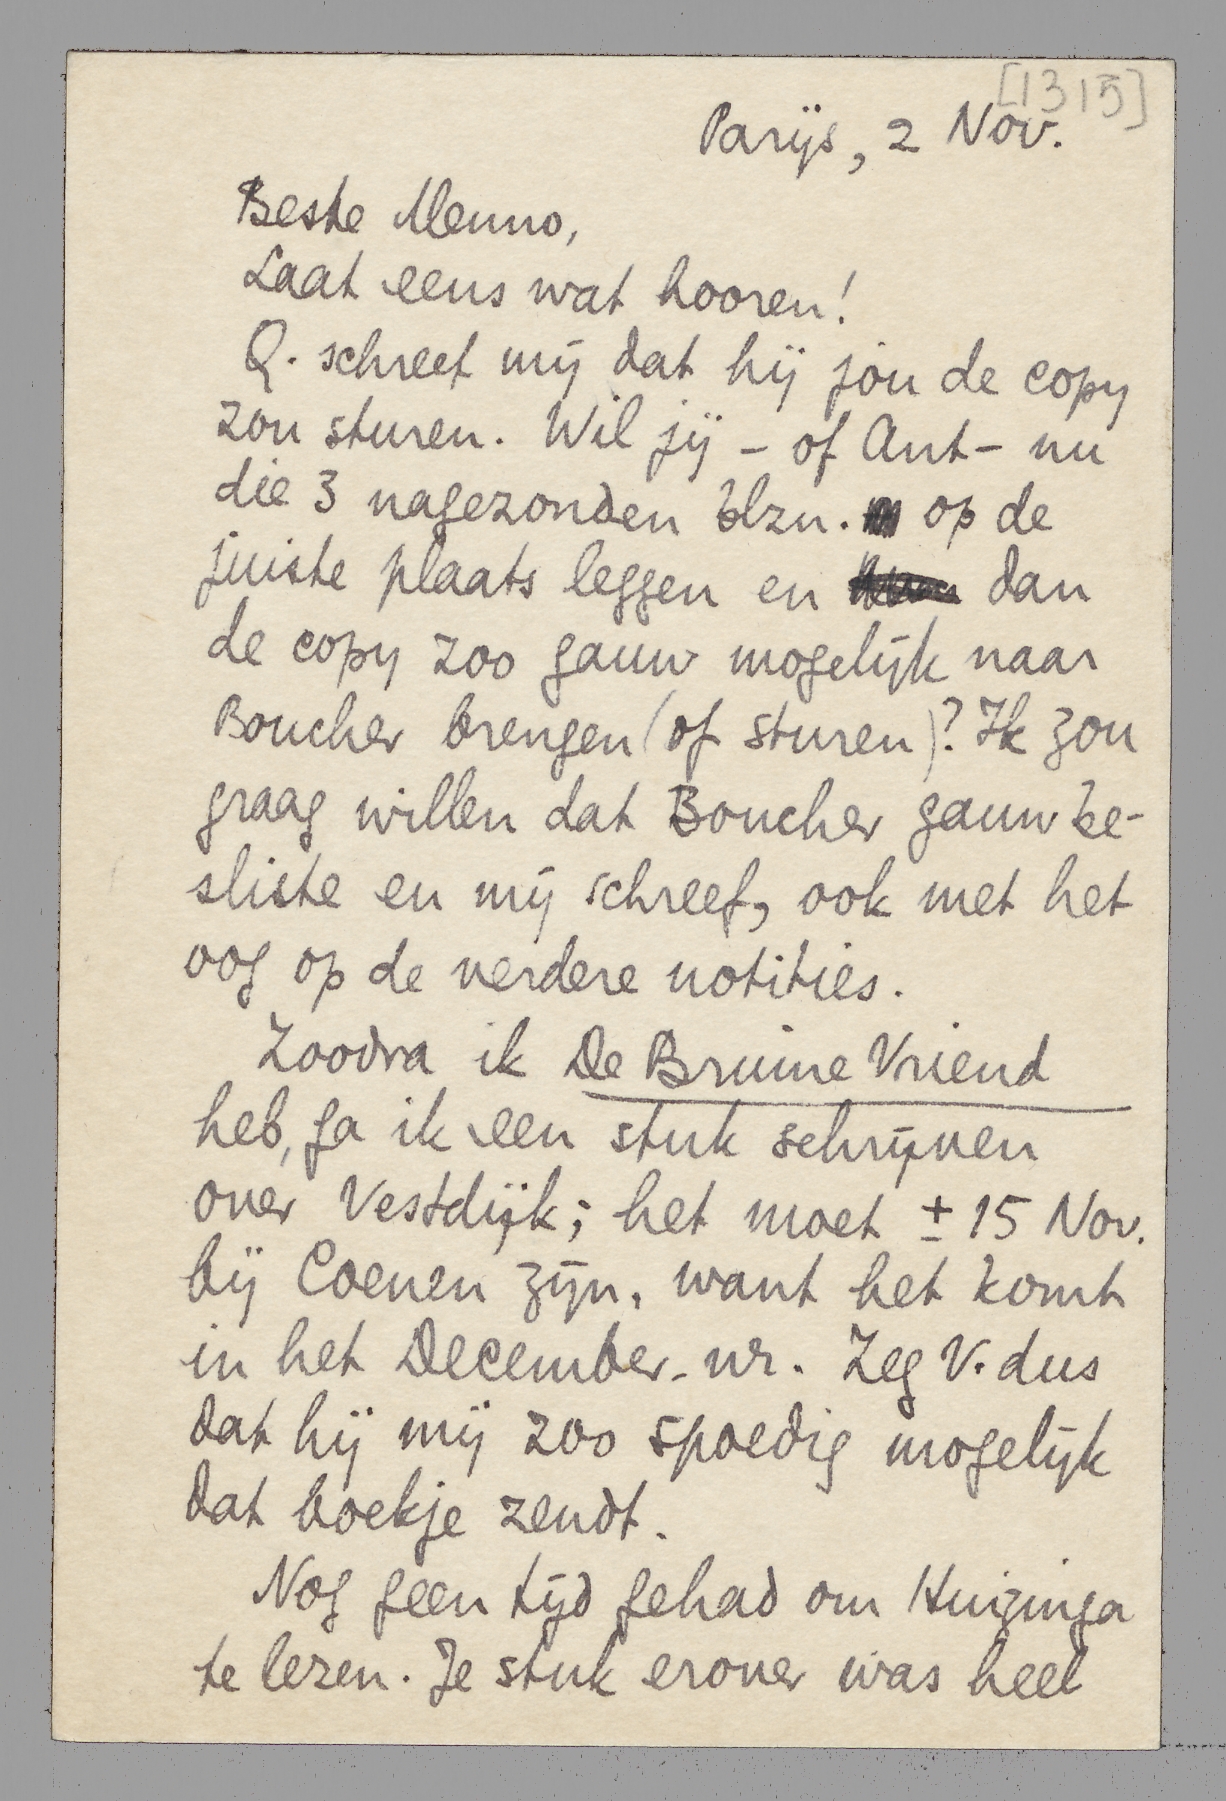 [1315]
Parijs, 2 Nov.
Beste Menno,
Laat eens wat hooren!
Q. schreef mij dat hij jou de copy
zou sturen. Wil jij – of Ant – nu
die 3 nagezonden blzn. op de
juiste plaats leggen en dan
de copy zoo gauw mogelijk naar
Boucher brengen (of sturen)? Ik zou
graag willen dat Boucher gauw be-
sliste en mij schreef, ook met het
oog op de verdere notities.
Zoodra ik De Bruine Vriend
heb, ga ik een stuk schrijven
over Vestdijk; het moet ± 15 Nov.
bij Coenen zijn, want het komt
in het December-nr. Zeg V. dus
dat hij mij zoo spoedig mogelijk
dat boekje zendt.
Nog geen tijd gehad om Huizinga
te lezen. Je stuk erover was heel